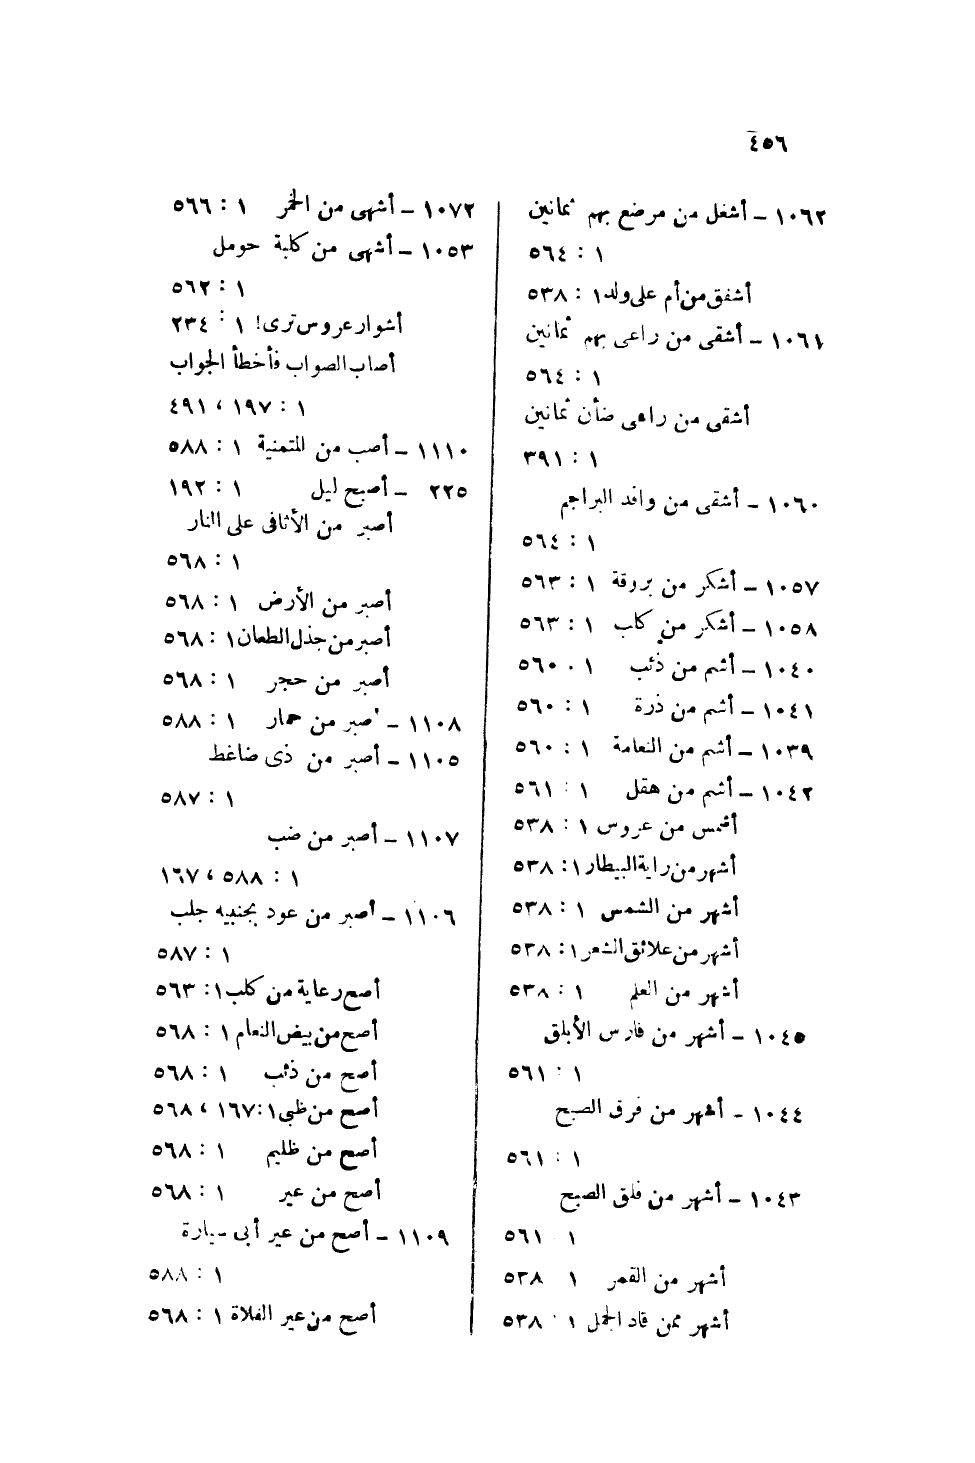 ٤٥٦
١٠٦٢ – أشغل من مرضع بهم ثمانين
١ : ٥٦٤
أشفق من أم على ولد ١ : ٥٣٨
١٠٦١ – أشقى من راعى بهم ثمانين
١ : ٥٦٤
أشقى من راعى ضأن ثمانين
١ : ٣٩١
١٠٦٠ – أشقى من وافد البراجم
١ : ٥٦٤
١٠٥٧ – أشكر من بروقة ١ : ٥٦٣
١٠٥٨ – أشكر من كلب ١ : ٥٦٣
١٠٤٠ – أشم من ذئب ١ . ٥٦٠
١٠٤١ – أشم من ذرة ١ : ٥٦٠
١٠٣٩ – أشم من النعامة ١ : ٥٦٠
١٠٤٢ – أشم من هقل ١ : ٥٦١
أشمس من عروس ١ : ٥٣٨
أشهر من راية البيطار ١ : ٥٣٨
أشهر من الشمس ١ : ٥٣٨
أشهر من علائق الشعر ١ : ٥٣٨
أشهر من العلم ١ : ٥٣٨
١٠٤٥ – أشهر من فارس الأبلق
١ : ٥٦١
١٠٤٤ – أشهر من فرق الصبح
١ : ٥٦١
١٠٤٣ – أشهر من فلق الصبح
١ ٥٦١
أشهر من القمر ١ ٥٣٨
أشهر ممن قاد الجمل ١ : ٥٣٨
١٠٧٢ – أشهى من الخمر ١ : ٥٦٦
١٠٥٣ – أشهى من كلبة حومل
١ : ٥٦٢
أشوار عروس ترى! ١ : ٢٣٤
أصاب الصواب فأخطأ الجواب
١ : ١٩٧ ، ٤٩١
١١١٠ – أصب من المتمنية ١ : ٥٨٨
٢٢٥ – أصبح ليل ١ : ١٩٢
أصبر من الأثافى على النار
١ : ٥٦٨
أصبر من الأرض ١ : ٥٦٨
أصبر من جذل الطعان ١ : ٥٦٨
أصبر من حجر ١ : ٥٦٨
١١٠٨ – أصبر من حمار ١ : ٥٨٨
١١٠٥ – أصبر من ذى ضاغط
١ : ٥٨٧
١١٠٧ – أصبر من ضب
١ : ٥٨٨ ، ١٦٧
١١٠٦ – أصبر من عود بجنبيه جلب
١ : ٥٨٧
أصح رعاية من كلب ١ : ٥٦٣
أصح من بيض النعام ١ : ٥٦٨
أصح من ذئب ١ : ٥٦٨
أصح من ظبى ١ : ١٦٧ ، ٥٦٨
أصح من ظليم ١ : ٥٦٨
أصح من عير ١ : ٥٦٨
١١٠٩ – أصح من عير أبى سيارة
١ : ٥٨٨
أصح من عير الفلاة ١ : ٥٦٨